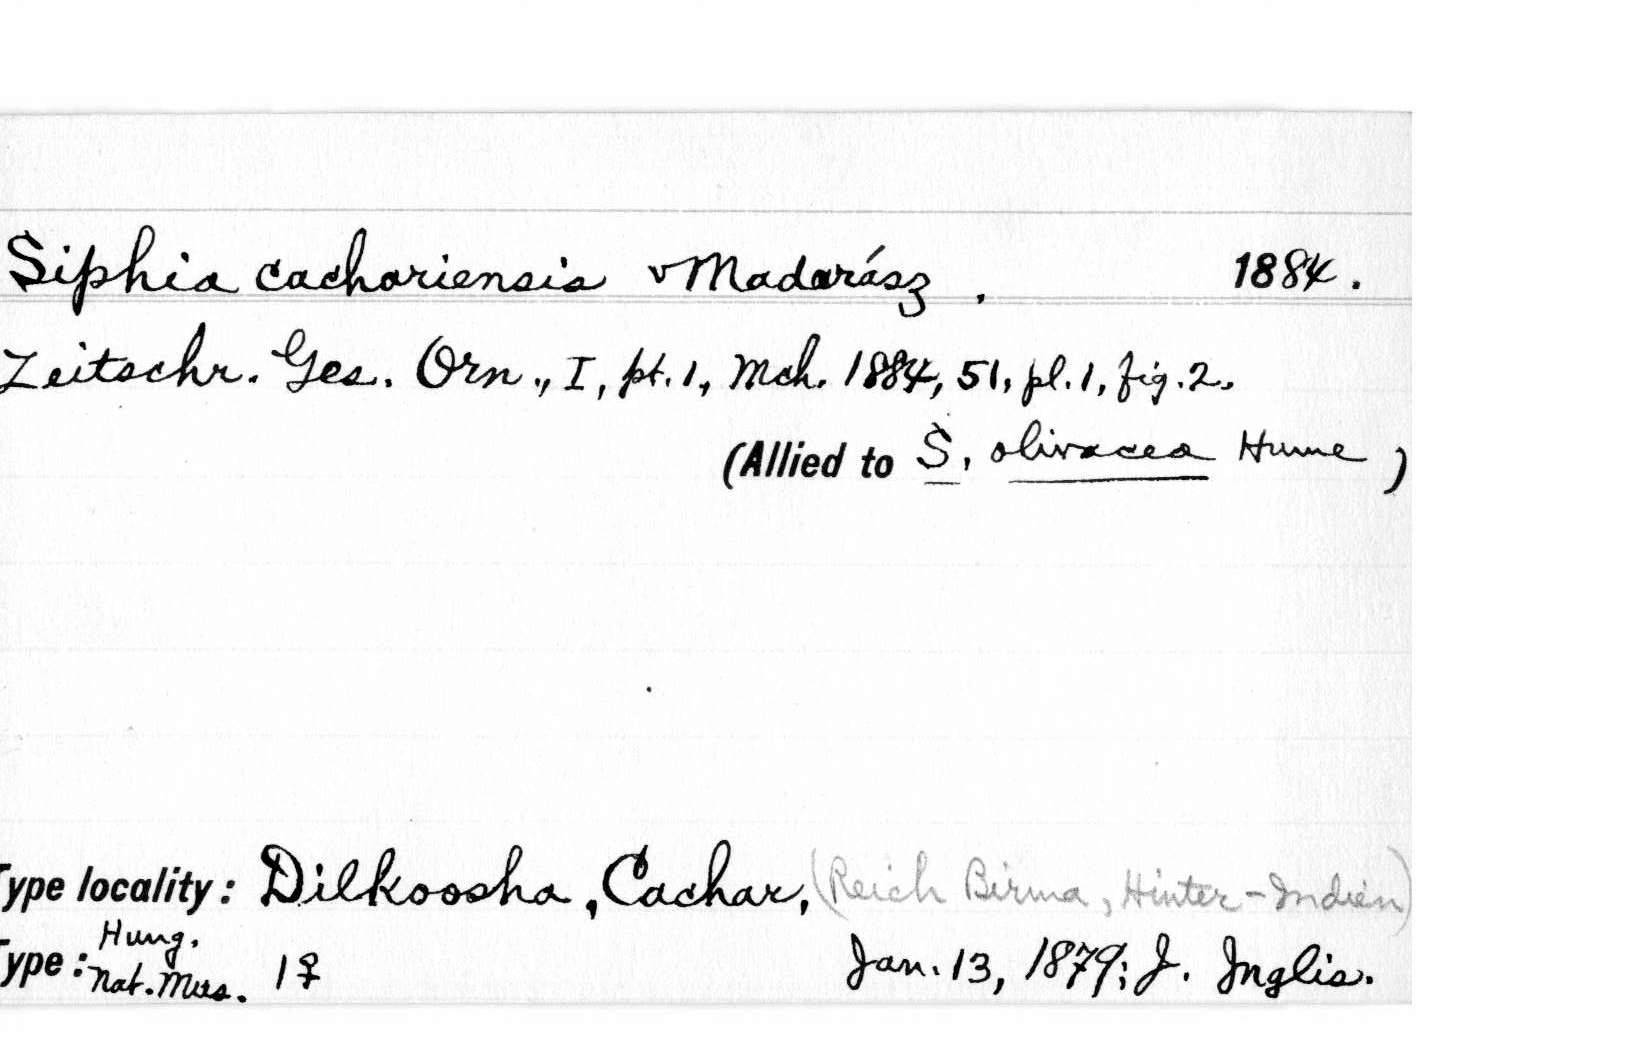 Siphia cachariensis v Madarász. 1884.
Zeitschr. Ges. Orn., I, pt. 1, Mch. 1884, 51, pl. 1, fig. 2.
(Allied to S. olivacea Hume)
Type locality: Dilkoosha, Cachar, (Reich Birma, Hinter-Indien)
Type: Hung. Nat. Mus. 1♀ Jan. 13, 1879; J. Inglis.